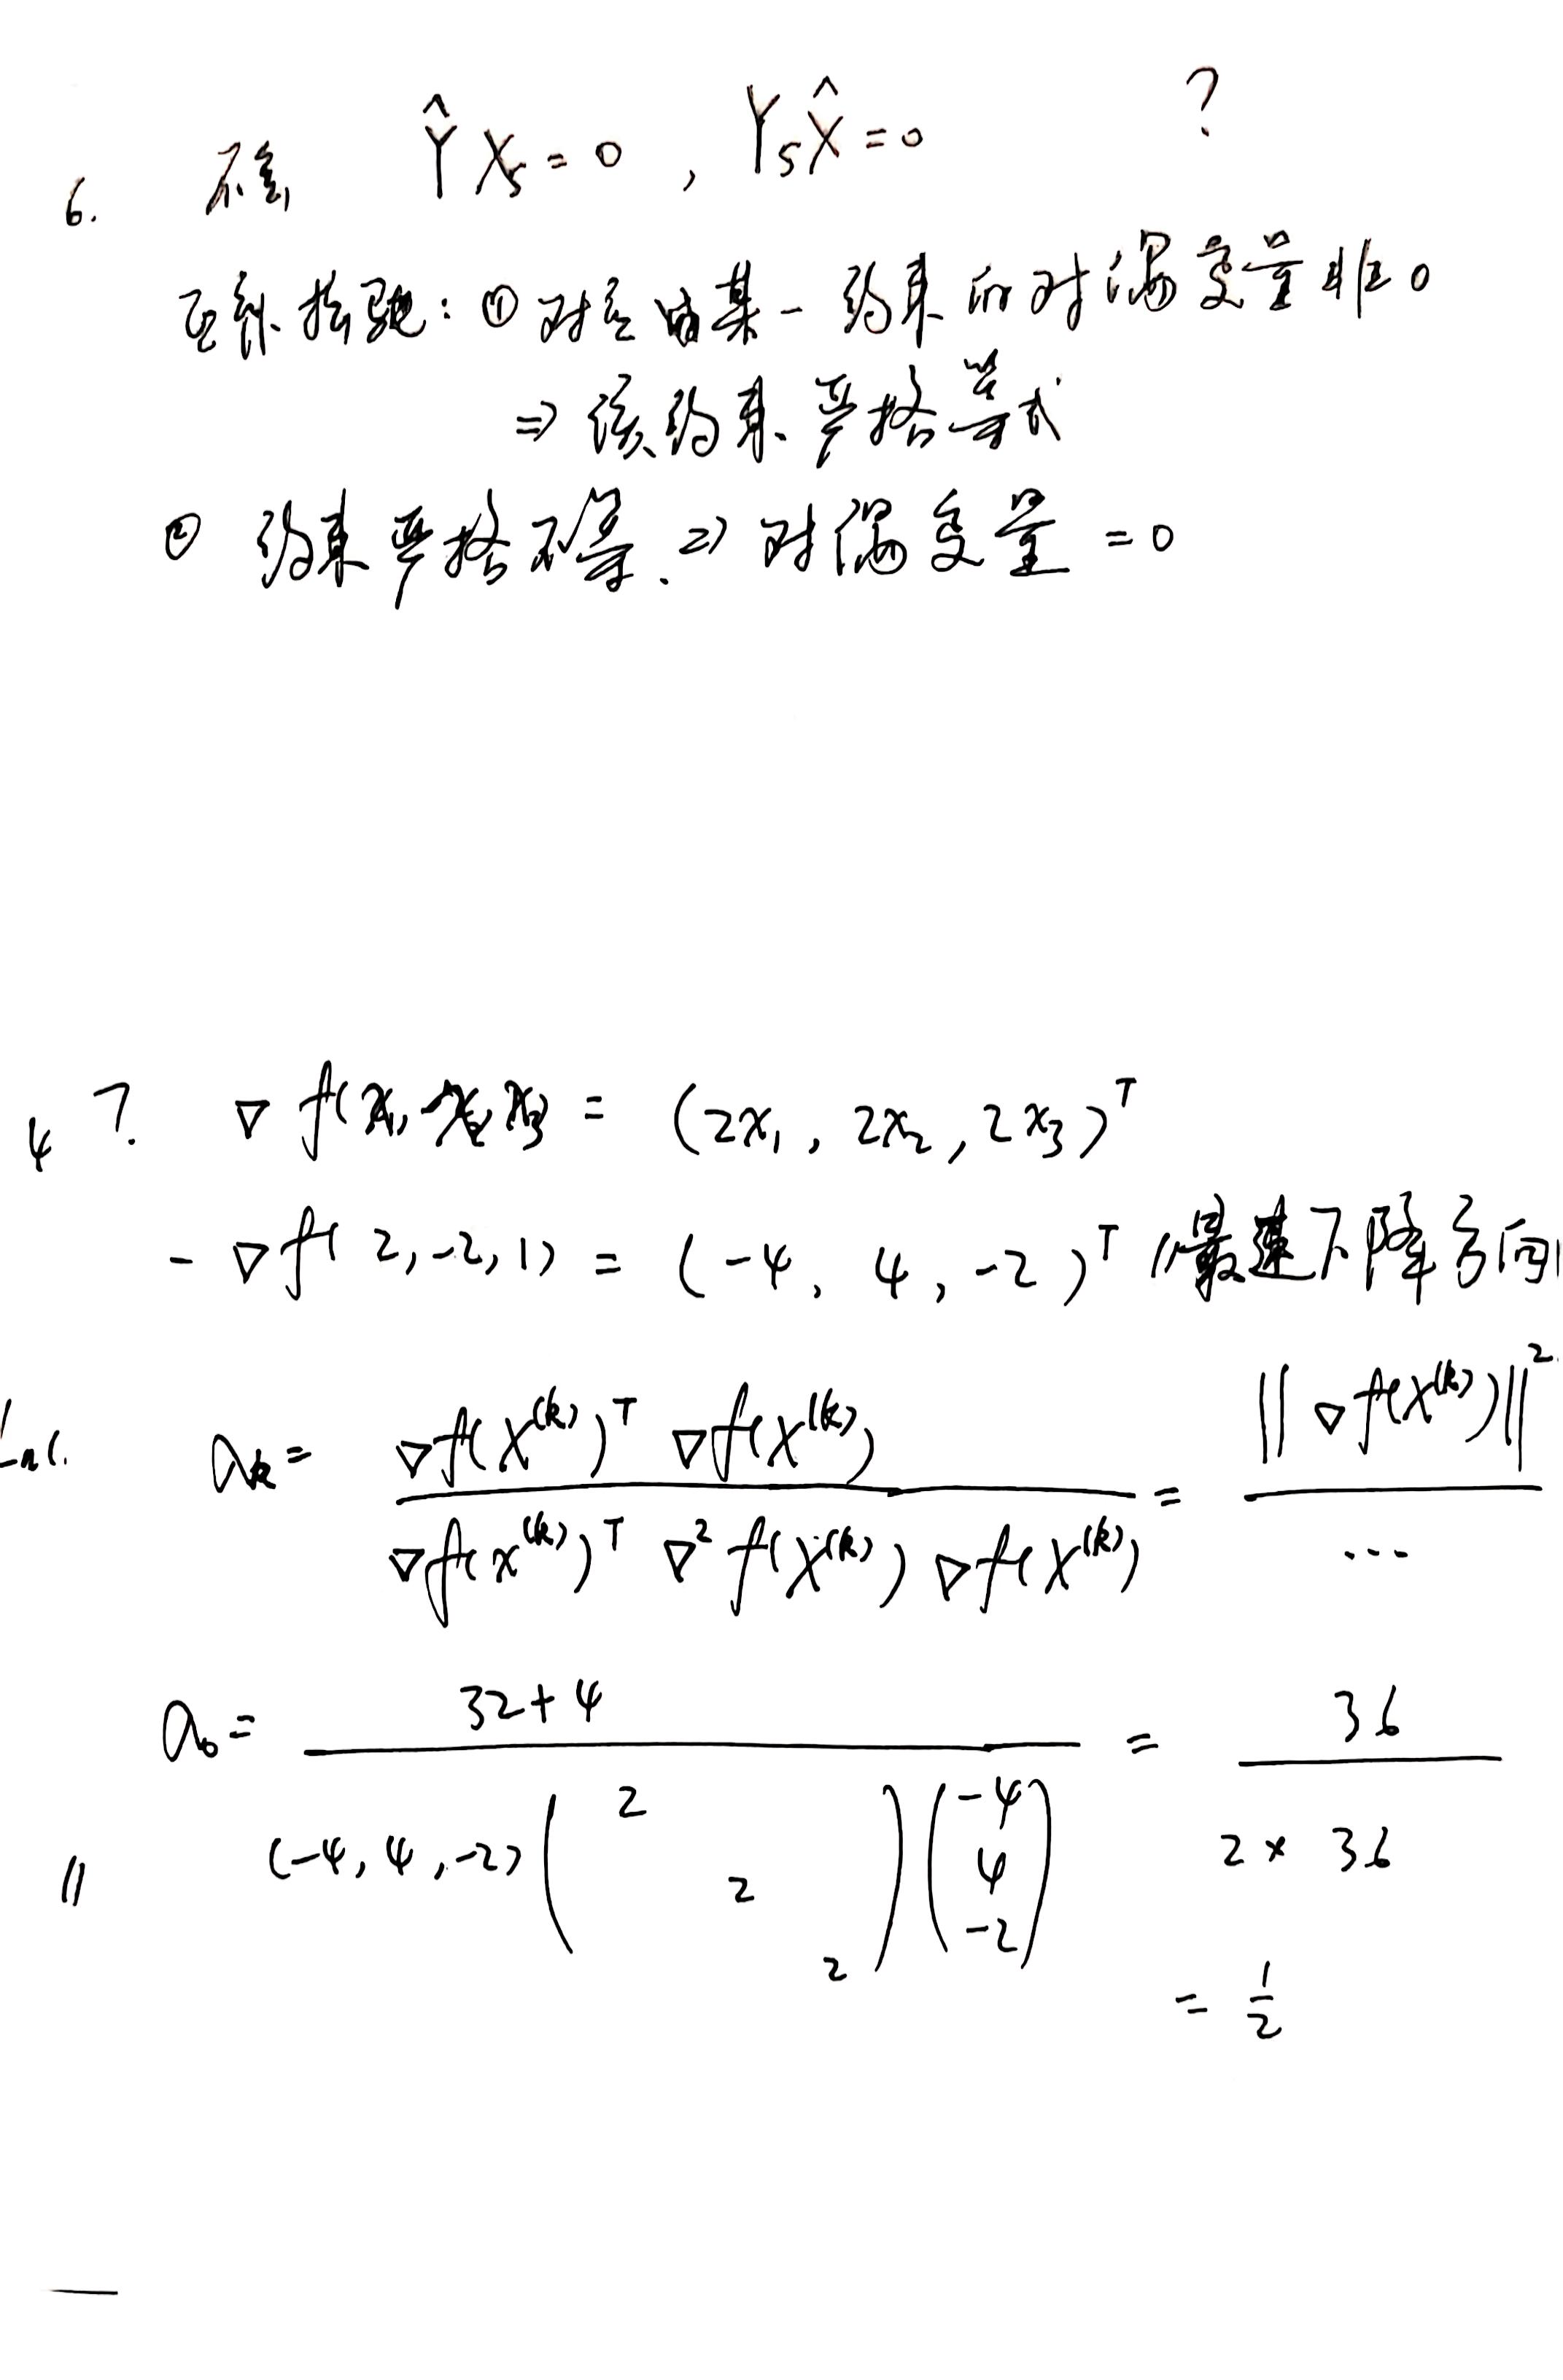 6. ŶXₛ=0 , YₛX̂=0 ?
互补松弛: ① 对应某一约束的对偶变量非0
⇒ 该约束严格等式
② 约束严格不等 ⇒ 对偶变量 =0
7. ∇f(x₁, x₂, x₃) = (2x₁, 2x₂, 2x₃)ᵀ
-∇f(2,-2,1) = (-4, 4, -2)ᵀ (最速下降方向)
aₖ = ∇f(X⁽ᵏ⁾)ᵀ ∇f(X⁽ᵏ⁾) / ∇f(X⁽ᵏ⁾)ᵀ ∇²f(X⁽ᵏ⁾) ∇f(X⁽ᵏ⁾) = ||∇f(X⁽ᵏ⁾)||² / ...
a₀ = 32+4 / (-4, 4, -2) (2 2 2) (-4 4 -2) = 36 / 2×36
= 1/2